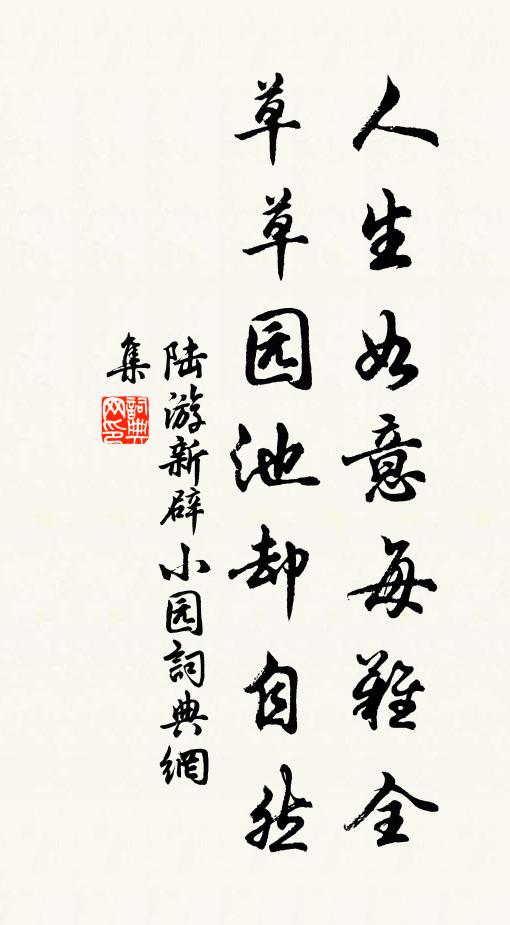 人生如意每難全
草草园池却自然
陆游新辟小园詞典網
集
詞典
网印